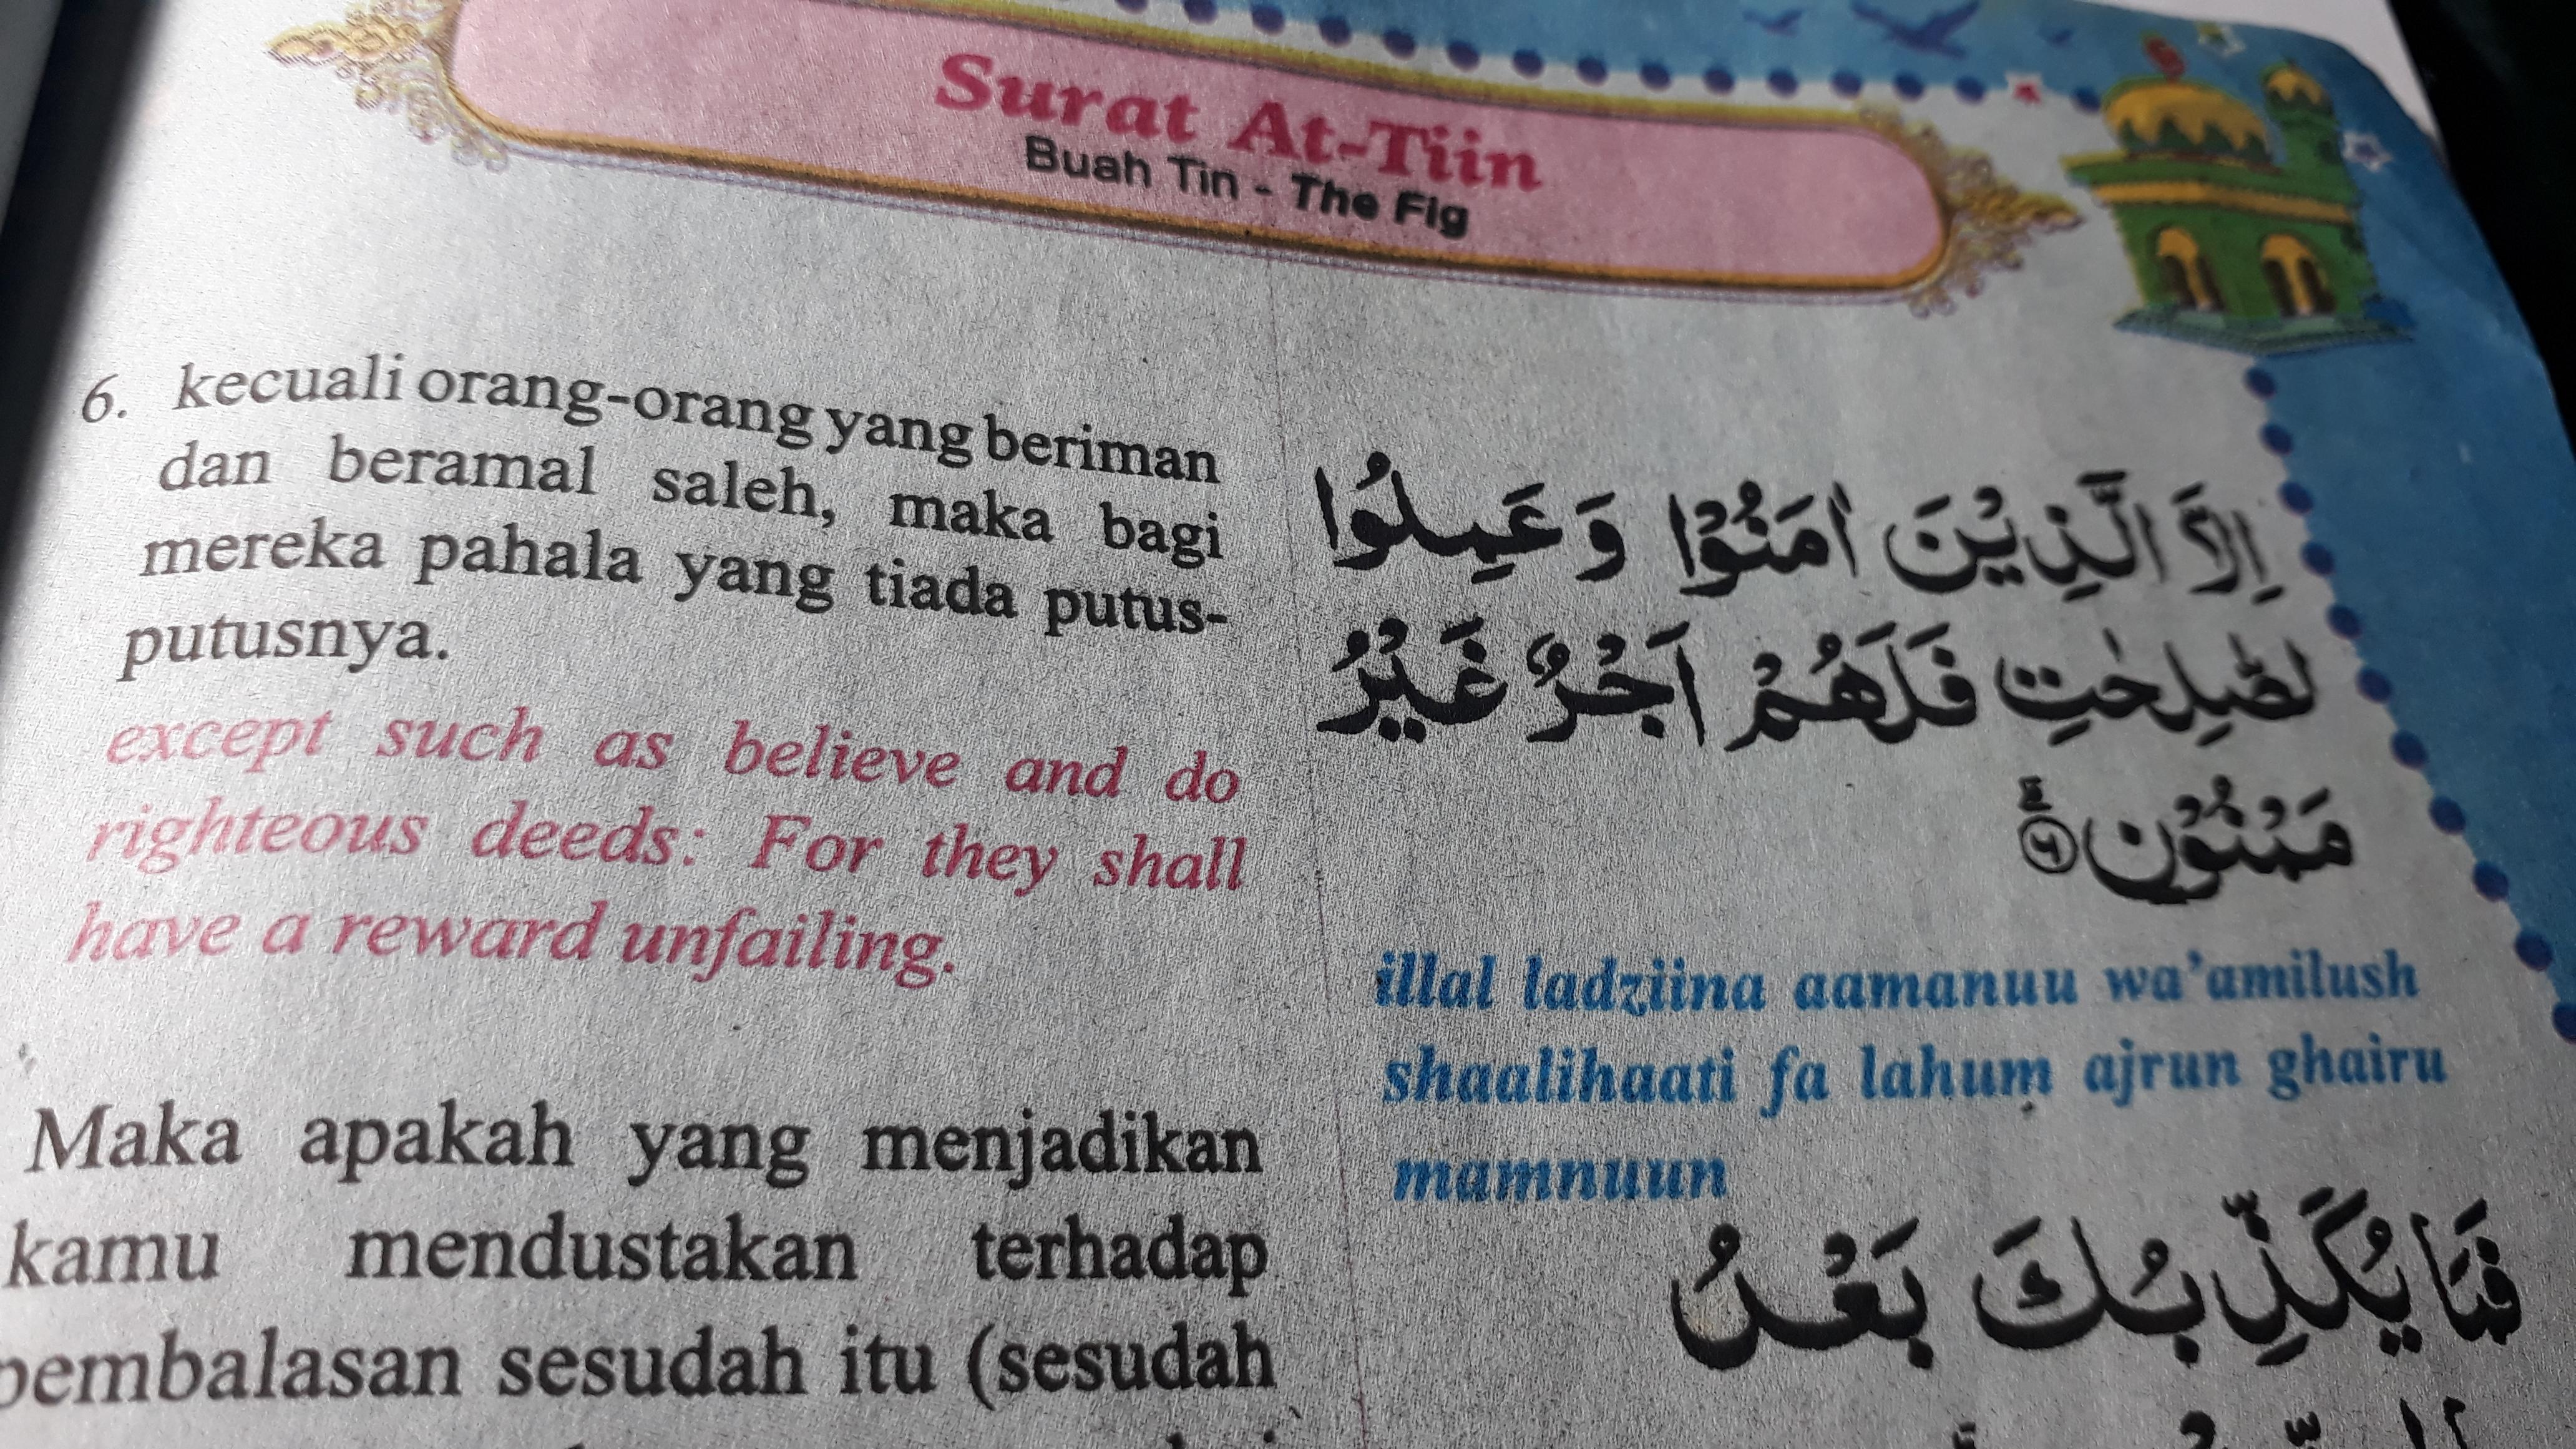 Surat At-Tiin
Buah Tin - The Fig
6. kecuali orang-orang yang beriman
dan beramal saleh, maka bagi
mereka pahala yang tiada putus-
putusnya.
except such as believe and do
righteous deeds: For they shall
have a reward unfailing.
اِلَّا الَّذِيْنَ اٰمَنُوْا وَعَمِلُوا
لصّٰلِحٰتِ فَلَهُمْ اَجْرٌ غَيْرُ
مَمْنُوْنٍ ۗ ٦
illal ladziina aamanuu wa'amilush
shaalihaati fa lahum ajrun ghairu
mamnuun
Maka apakah yang menjadikan
kamu mendustakan terhadap
pembalasan sesudah itu (sesudah
فَمَا يُكَذِّبُكَ بَعْدُ